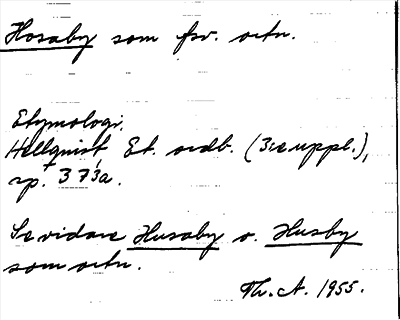 Hosaby som fsv. ortn.
Etymologi.
Hellquist Et. ordb. (3:e uppl.),
sp. 373a.
Se vidare Husaby o. Husby
som ortn.
Th. A. 1955.